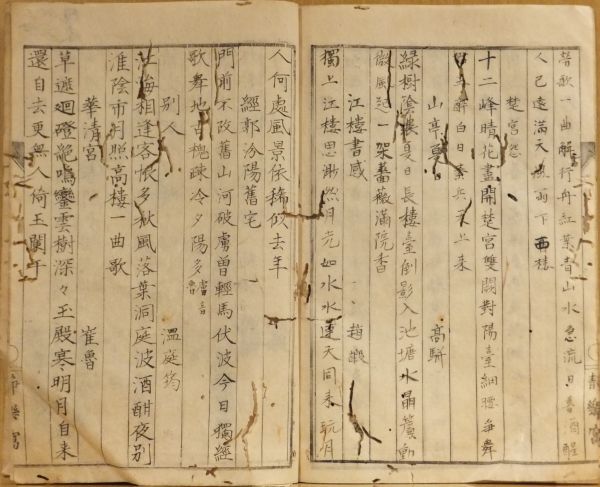 勞歌一曲解行舟紅葉青山水急流日暮酒醒
人已遠滿天風雨下西樓
楚宮怨
十二峰晴花盡開楚宮雙闕對陽臺細腰爭舞
君王醉白日秦兵天上來
山亭夏日 高駢
綠樹陰濃夏日長樓臺倒影入池塘水晶簾動
微風起一架薔薇滿院香
江樓書感 趙嘏
獨上江樓思渺然月光如水水連天同來玩月
人何處風景依稀似去年
經郭汾陽舊宅
門前不改舊山河破虜曾輕馬伏波今日獨經
歌舞地古槐疎冷夕陽多
別人 溫庭筠
江海相逢客恨多秋風落葉洞庭波酒酣夜別
淮陰市月照高樓一曲歌
華清宮 崔魯
草遮廻磴絕鳴鑾雲樹深々玉殿寒明月自来
還自去更無人倚玉闌干